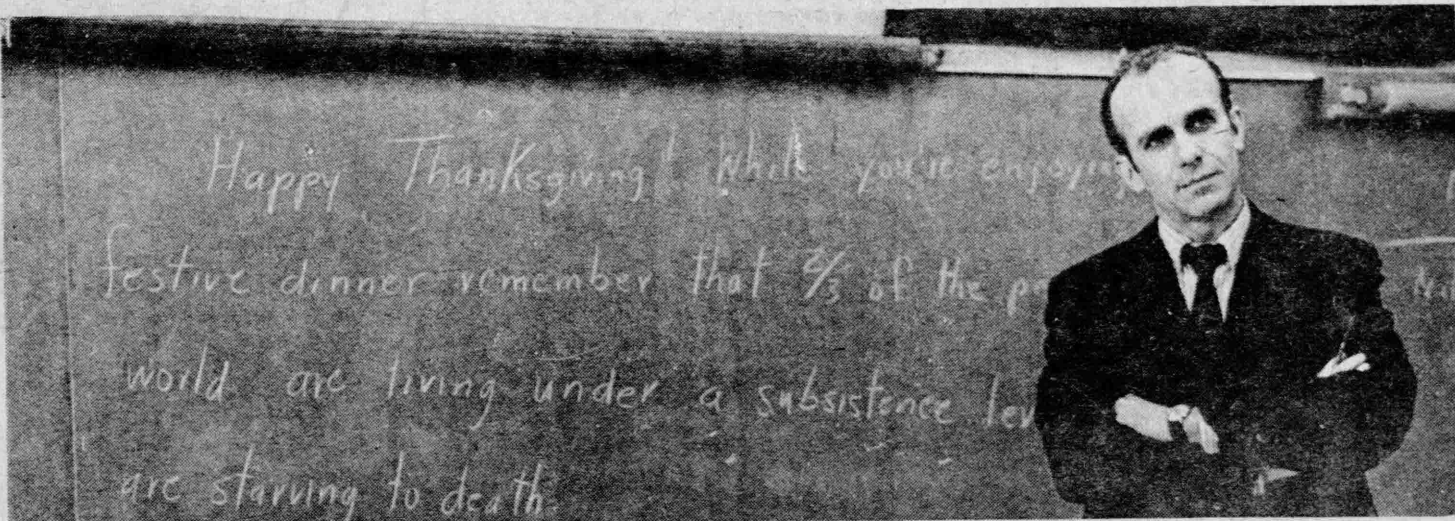 Happy Thanksgiving! While you're enjoying
festive dinner remember that 2/3 of the
world are living under a subsistence
are starving to death.